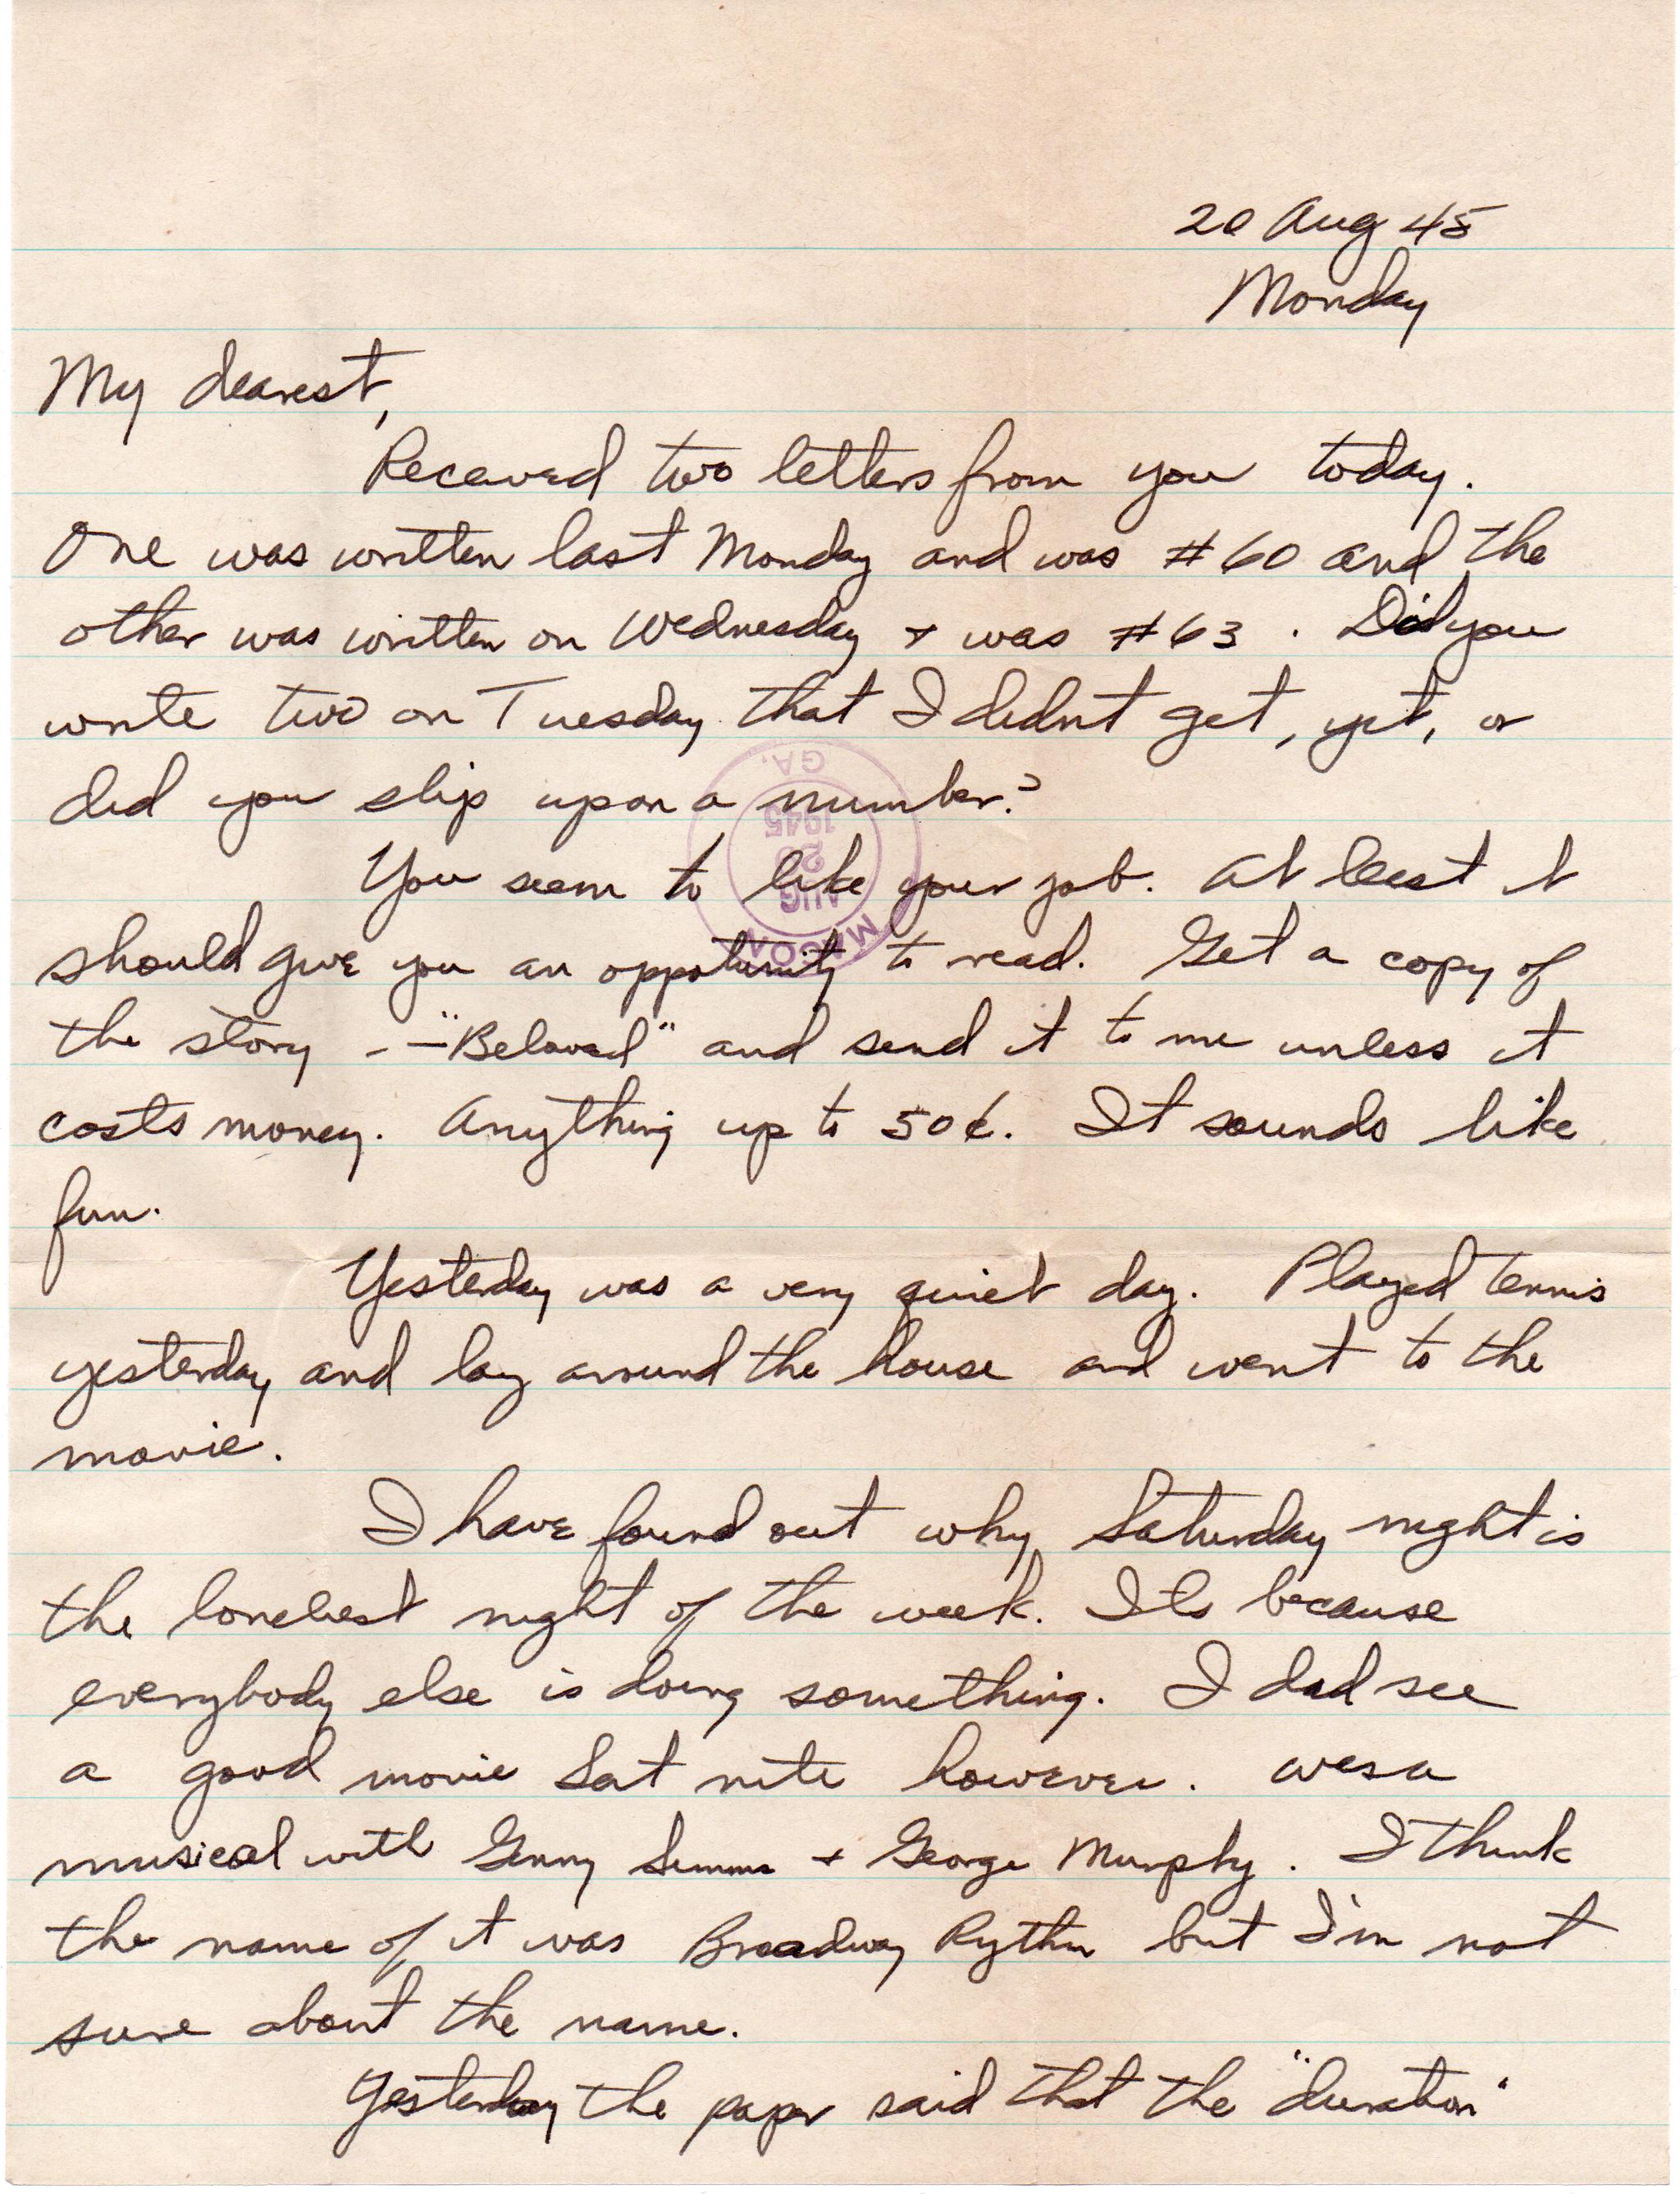 20 Aug 45
Monday
My dearest,
Received two letters from you today.
One was written last Monday and was #60 and the
other was written on Wednesday + was #63. Did you
write two on Tuesday that I didnt get, yet, or
did you slip upon a number?
You seem to like your job. At least it
should give you an oppotunity to read. Get a copy of
the story -- "Beloved" and send it to me unless it
costs money. Anything up to 50¢. It sounds like
fun.
Yesterday was a very quiet day. Played tennis
yesterday and lay around the house and went to the
movie.
I have found out why Saturday night is
the loneliest night of the week. Its because
everybody else is doing something. I did see
a good movie Sat nite however. was a
musical with Ginny Simms + George Murphy. I think
the name of it was Broadway Rythm but I'm not
sure about the name.
Yesterday the paper said that the "duration"
MACON
AUG
20
1945
GA.